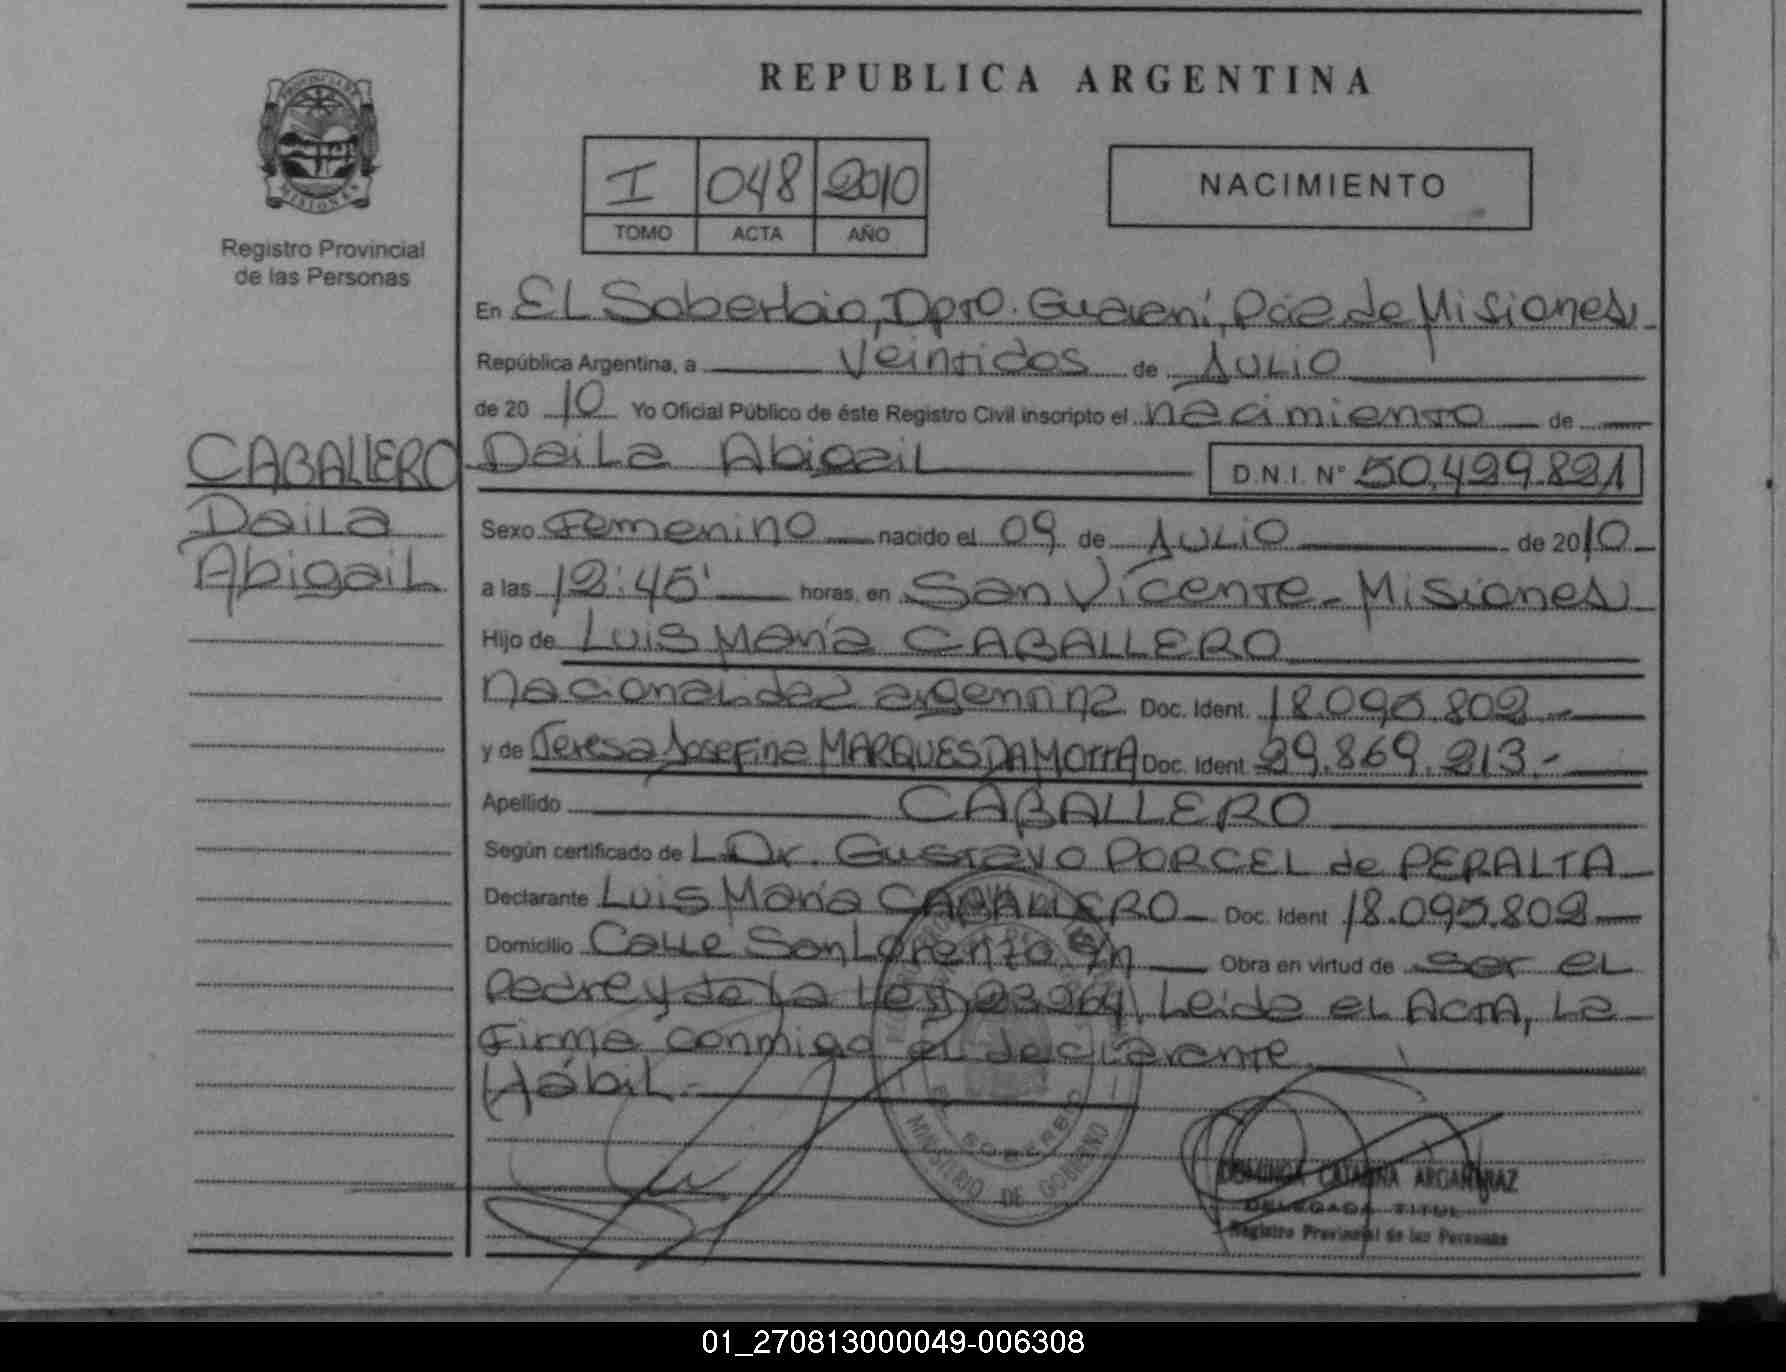 REPUBLICA ARGENTINA
PROVINCIA DE
MISIONES
Registro Provincial
de las Personas
I 048 2010
TOMO ACTA AÑO
NACIMIENTO
En EL Soberbio, Dpto. Guaraní, Pcia de Misiones
República Argentina, a Veintidos de JULIO
de 2010 Yo Oficial Público de éste Registro Civil inscripto el nacimiento de
CABALLERO
Daila
Abigail
Daila Abigail D.N.I. Nº 50.429.821
Sexo Femenino nacido el 09 de JULIO de 2010
a las 12:45' horas, en San Vicente - Misiones
Hijo de Luis María CABALLERO
nacionalidad argentina Doc. Ident. 18.095.802.-
y de Teresa Josefina MARQUES DA MOTTA Doc. Ident. 29.869.213.-
Apellido CABALLERO
Según certificado de L.Dr. Gustavo PORCEL de PERALTA
Declarante Luis María CABALLERO Doc. Ident 18.095.802
Domicilio Calle San Lorenzo s/n Obra en virtud de ser el
Padre y de la Ley Leida el Acta, la
firma conmigo el declarante
Hábil.-
EL SOBERBIO
MINISTERIO DE GOBIERNO
CATALINA
DELEGADA TITUL
Registro Provincial de las Personas
01_270813000049-006308